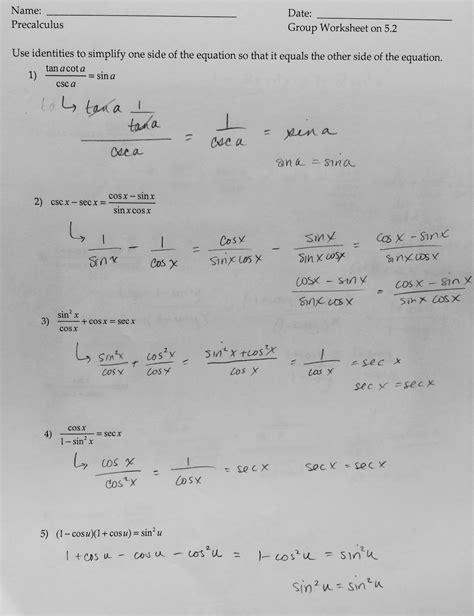 Name: Date:
Precalculus Group Worksheet on 5.2
Use identities to simplify one side of the equation so that it equals the other side of the equation.
1) tan a cot a / csc a = sin a
tan a 1/tan a / csc a = 1/csc a = sin a
sin a = sin a
2) csc x − sec x = cos x − sin x / sin x cos x
1/sin x − 1/cos x = cos x / sin x cos x − sin x / sin x cos x = cos x − sin x / sin x cos x
cos x − sin x / sin x cos x = cos x − sin x / sin x cos x
3) sin²x / cos x + cos x = sec x
sin²x / cos x + cos²x / cos x = sin²x + cos²x / cos x = 1/cos x = sec x
sec x = sec x
4) cos x / 1 − sin²x = sec x
cos x / cos²x = 1/cos x = sec x sec x = sec x
5) (1 − cos u)(1 + cos u) = sin²u
1 + cos u − cos u − cos²u = 1 − cos²u = sin²u
sin²u = sin²u